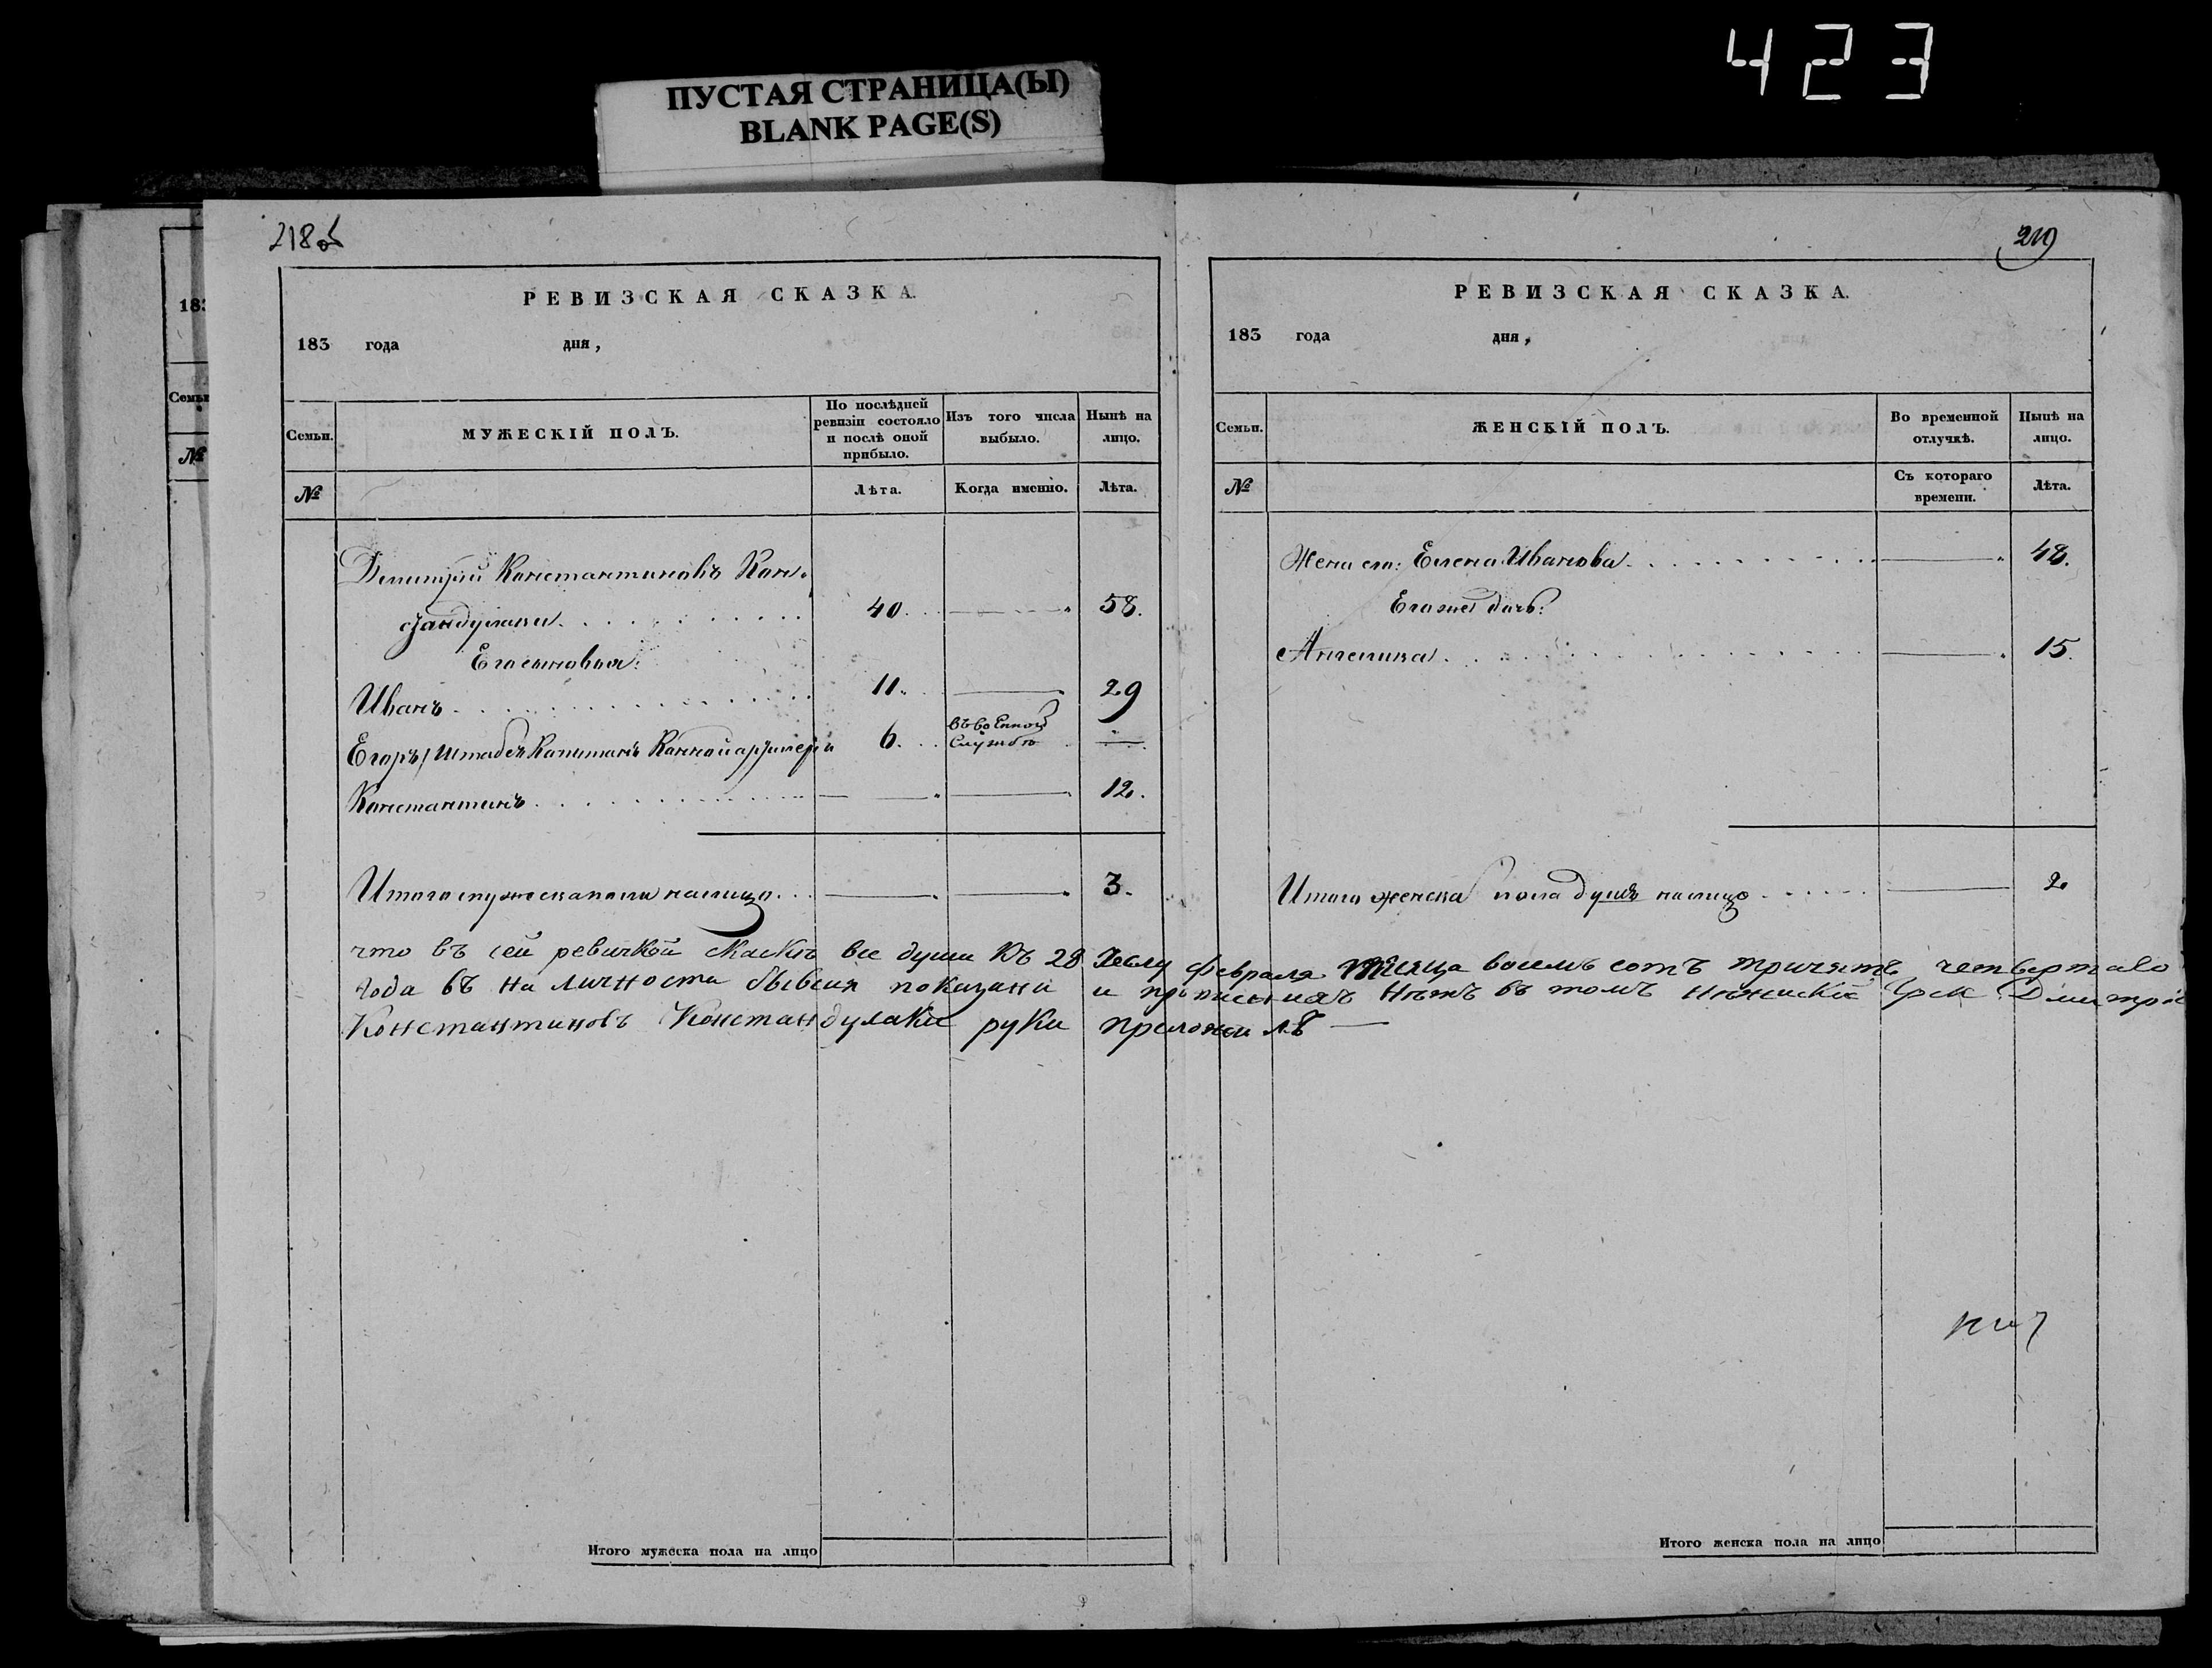 423
ПУСТАЯ СТРАНИЦА(Ы)
BLANK PAGE(S)
218об
РЕВИЗСКАЯ СКАЗКА.
183 года дня,
Семьи. МУЖЕСКІЙ ПОЛЪ. По послѣдней ревизіи состояло и послѣ оной прибыло. Изъ того числа выбыло. Нынѣ на лицо.
№ Лѣта. Когда именно. Лѣта.
Дмитрій Константиновъ Кон-
стандулаки 40. 58.
Его сыновья:
Иванъ 11. 29
Егоръ / Штабсъ Капитанъ Конной артилеріи 6. въ военной службѣ
Константинъ 12.
Итого мужеска пола налицо 3.
что въ сей ревизкой скаскѣ все души къ 28 числу февраля месяца восемъ сотъ тричять четвертаго
года въ на личности бывшия показани и прописныхъ нѣтъ въ томъ нѣжнскій Грек Дмитріе
Константиновъ Констандулаки руки приложилъ
Итого мужеска пола на лицо
219
РЕВИЗСКАЯ СКАЗКА.
183 года дня,
Семьи. ЖЕНСКІЙ ПОЛЪ. Во временной отлучкѣ. Нынѣ на лицо.
№ Съ котораго времени. Лѣта.
Жена его: Елена Иванова 48.
Его же дочь:
Ангелика 15.
Итого женска пола душъ налицо 2.
Итого женска пола на лицо
183
Семьи
№